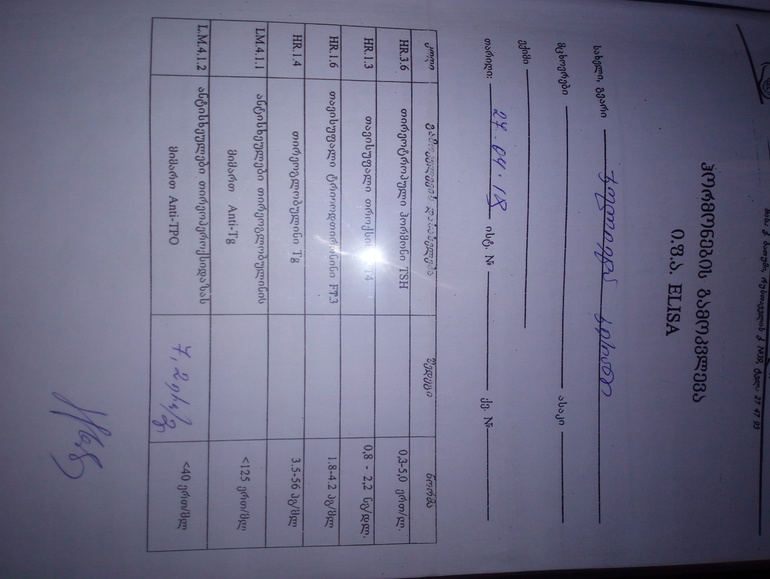 ჰორმონების გამოკვლევა
ი.ფ.ა. ELISA
სახელი, გვარი
მცხოვრები ასაკი
ექიმი
თარიღი: 27.04.18 ისტ. № ქვ. №
კოდი გამოკვლევის დასახელება შედეგი ნორმა
HR.3.6 თირეოტროპული ჰორმონი TSH 0,3-5,0 ერთ/ლ.
HR.1.3 თავისუფალი თიროქსინი 0,8 - 2,2 ნგ/დლ.
HR.1.6 თავისუფალი ტრიიოდთირონინი FT3 1.8-4.2 პგ/მლ
HR.1.4 თირეოგლობულინი Tg 3.5-56 პგ/მლ
LM.4.1.1 ანტისხეულები თირეოგლობულინის მიმართ Anti-Tg <125 ერთ/მლ
L.M.4.1.2 ანტისხეულები თირეოპეროქსიდაზას მიმართ Anti-TPO 7,2 <40 ერთ/მლ